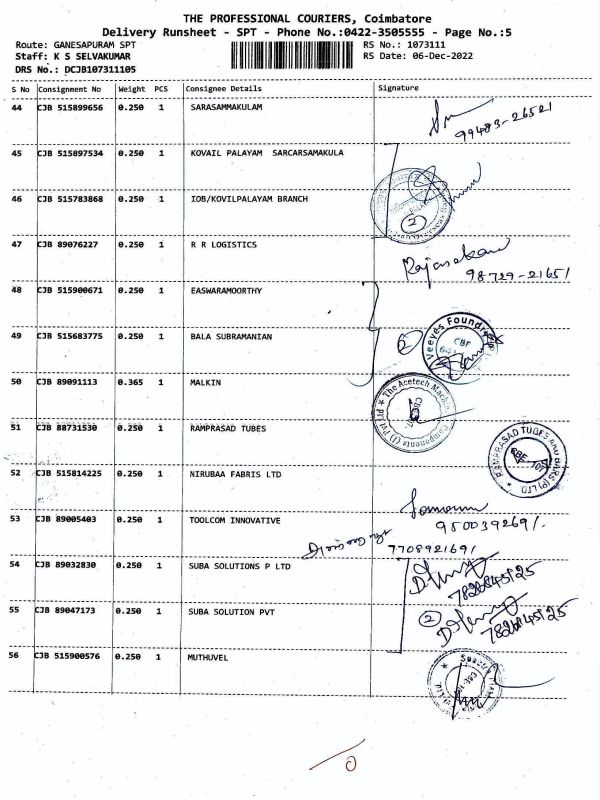 THE PROFESSIONAL COURIERS, Coimbatore
Delivery Runsheet - SPT - Phone No.:0422-3505555 - Page No.:5
Route: GANESAPURAM SPT RS No.: 1073111
Staff: K S SELVAKUMAR RS Date: 06-Dec-2022
DRS No.: DCJB107311105
S No Consignment No Weight PCS Consignee Details Signature
44 CJB 515899656 0.250 1 SARASAMMAKULAM
99483-26521
45 CJB 515897534 0.250 1 KOVAIL PALAYAM SARCARSAMAKULA
46 CJB 515783868 0.250 1 IOB/KOVILPALAYAM BRANCH
2
47 CJB 89076227 0.250 1 R R LOGISTICS
Rajasekar
98729-21651
48 CJB 515900671 0.250 1 EASWARAMOORTHY
49 CJB 515683775 0.250 1 BALA SUBRAMANIAN
2 Veeyes Foundry CBF
50 CJB 89091113 0.365 1 MALKIN
The Acetech Machine Components (I) Pvt Ltd
51 CJB 88731530 0.250 1 RAMPRASAD TUBES
RAMPRASAD TUBES AND BARS (P) LTD
52 CJB 515814225 0.250 1 NIRUBAA FABRIS LTD
53 CJB 89005403 0.250 1 TOOLCOM INNOVATIVE
9500392691.
7708921691
54 CJB 89032830 0.250 1 SUBA SOLUTIONS P LTD
55 CJB 89047173 0.250 1 SUBA SOLUTION PVT
2
56 CJB 515900576 0.250 1 MUTHUVEL